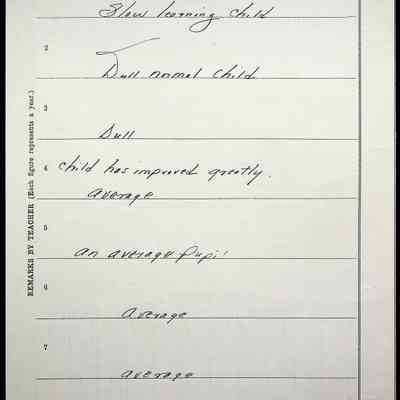 Slow learning child
2
Dull normal child
3
Dull
4 child has improved greatly.
average
5
an average Pupil
6
Average
7
average
REMARKS BY TEACHER (Each figure represents a year.)